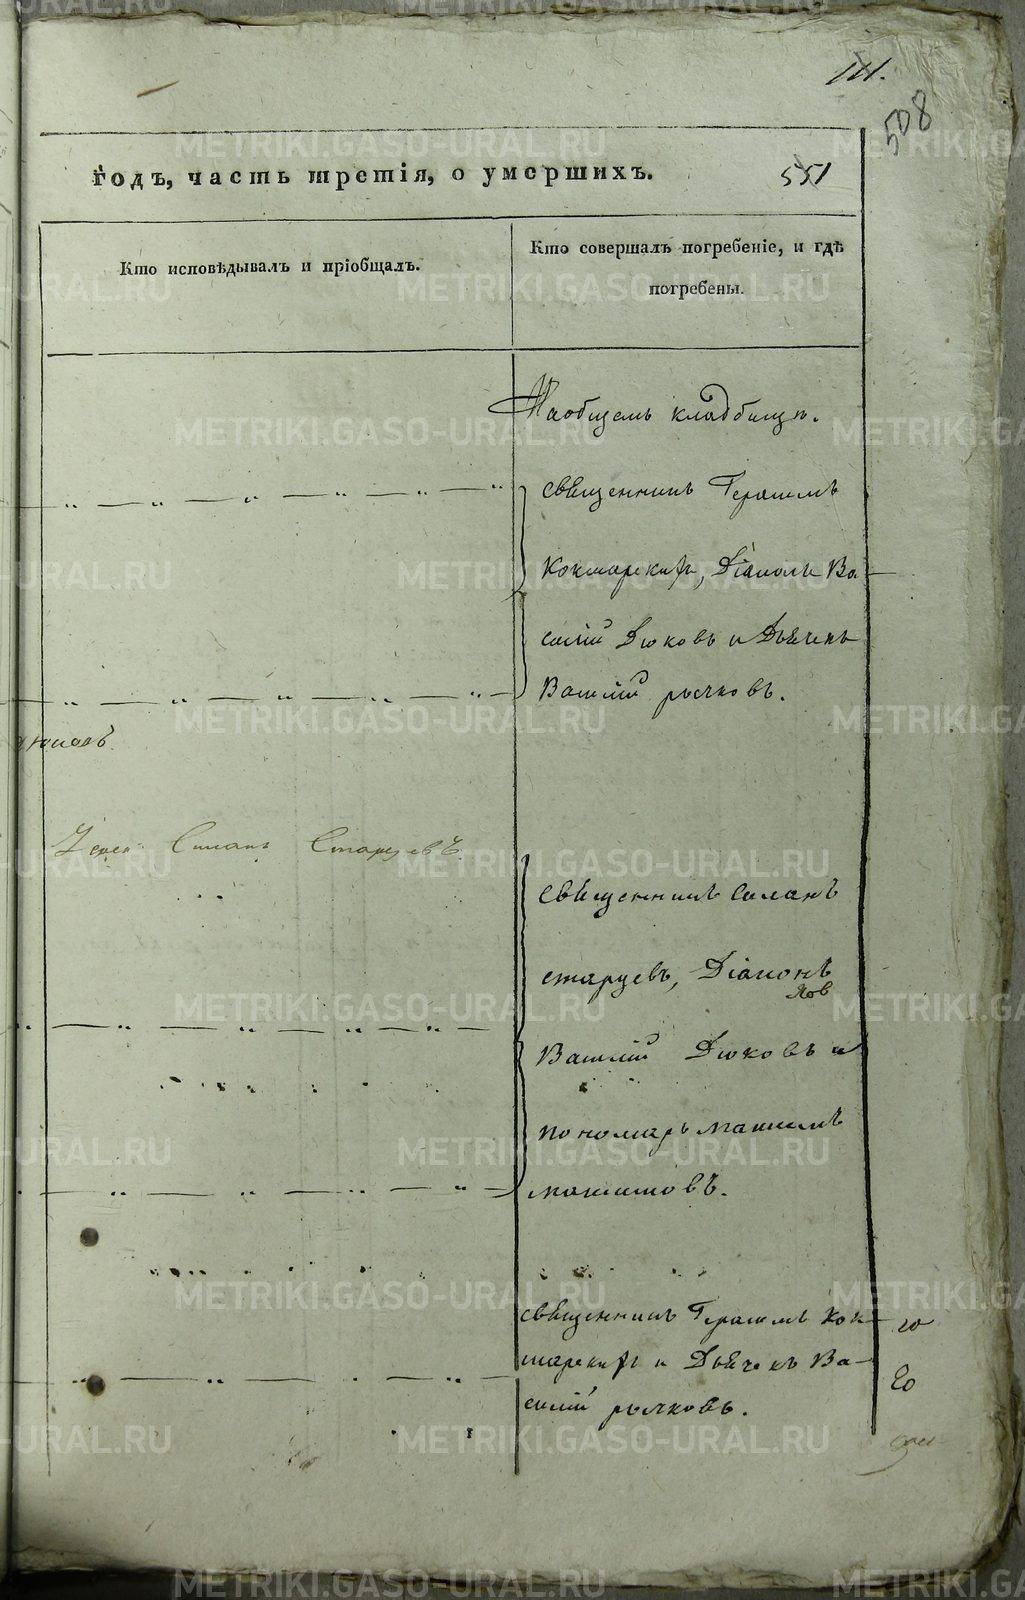 111.
508
годъ, часть третія, о умершихъ.
551
Кто исповѣдывалъ и пріобщалъ.
Кто совершалъ погребеніе, и гдѣ
погребены.
На общемъ кладбищѣ.
священникъ Герасимъ
Діаконъ Ва-
силій Дюковъ и Дьячекъ
Василій рычковъ.
Іерей Симанъ Старцевъ
священникъ Симанъ
старцевъ, Діаконъ
Яов
Василій Дюковъ и
пономарь Максимъ
священникъ Герасимъ
и Дьячекъ Ва-
силій рычковъ.
METRIKI.GASO-URAL.RU